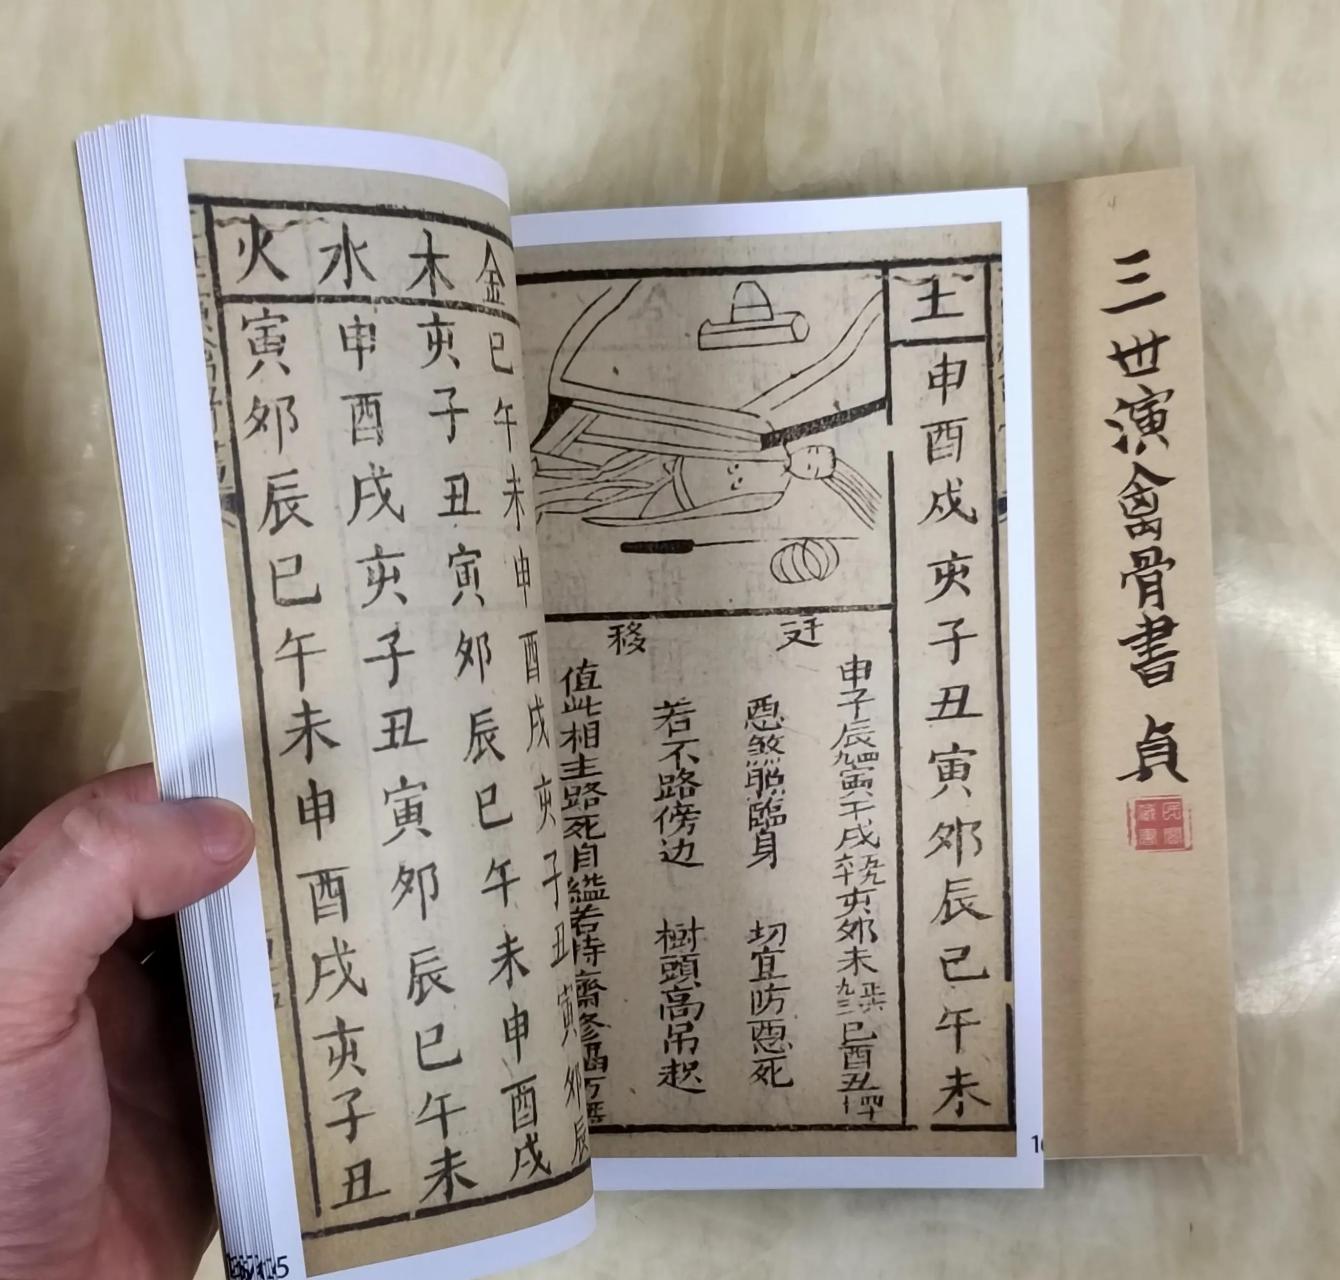 三世演禽骨書 貞
土
申酉戍亥子丑寅卯辰巳午未
迁
移
申子辰
寅午戌
亥卯未
巳酉丑
惡煞臨身
切宜防惡死
若不路傍边
樹頭高吊起
值此相主路死自縊若持齋修福
金
巳午未申酉戌亥子丑寅卯辰
木
亥子丑寅卯辰巳午未申酉戌
水
申酉戌亥子丑寅卯辰巳午未
火
寅卯辰巳午未申酉戌亥子丑